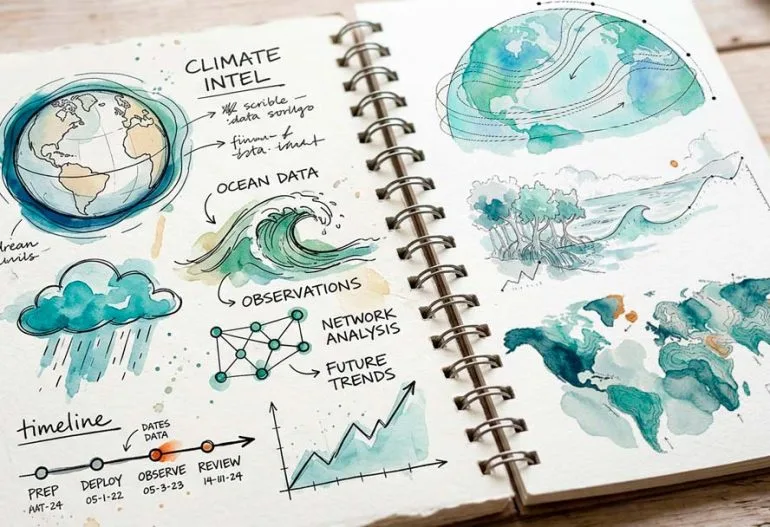 CLIMATE
INTEL
scrible
data
OCEAN DATA
OBSERVATIONS
NETWORK
ANALYSIS
FUTURE
TRENDS
timeline
DATES
DATA
PREP
AAT-24
DEPLOY
05-1-22
OBSERVE
05-3-23
REVIEW
14-111-24